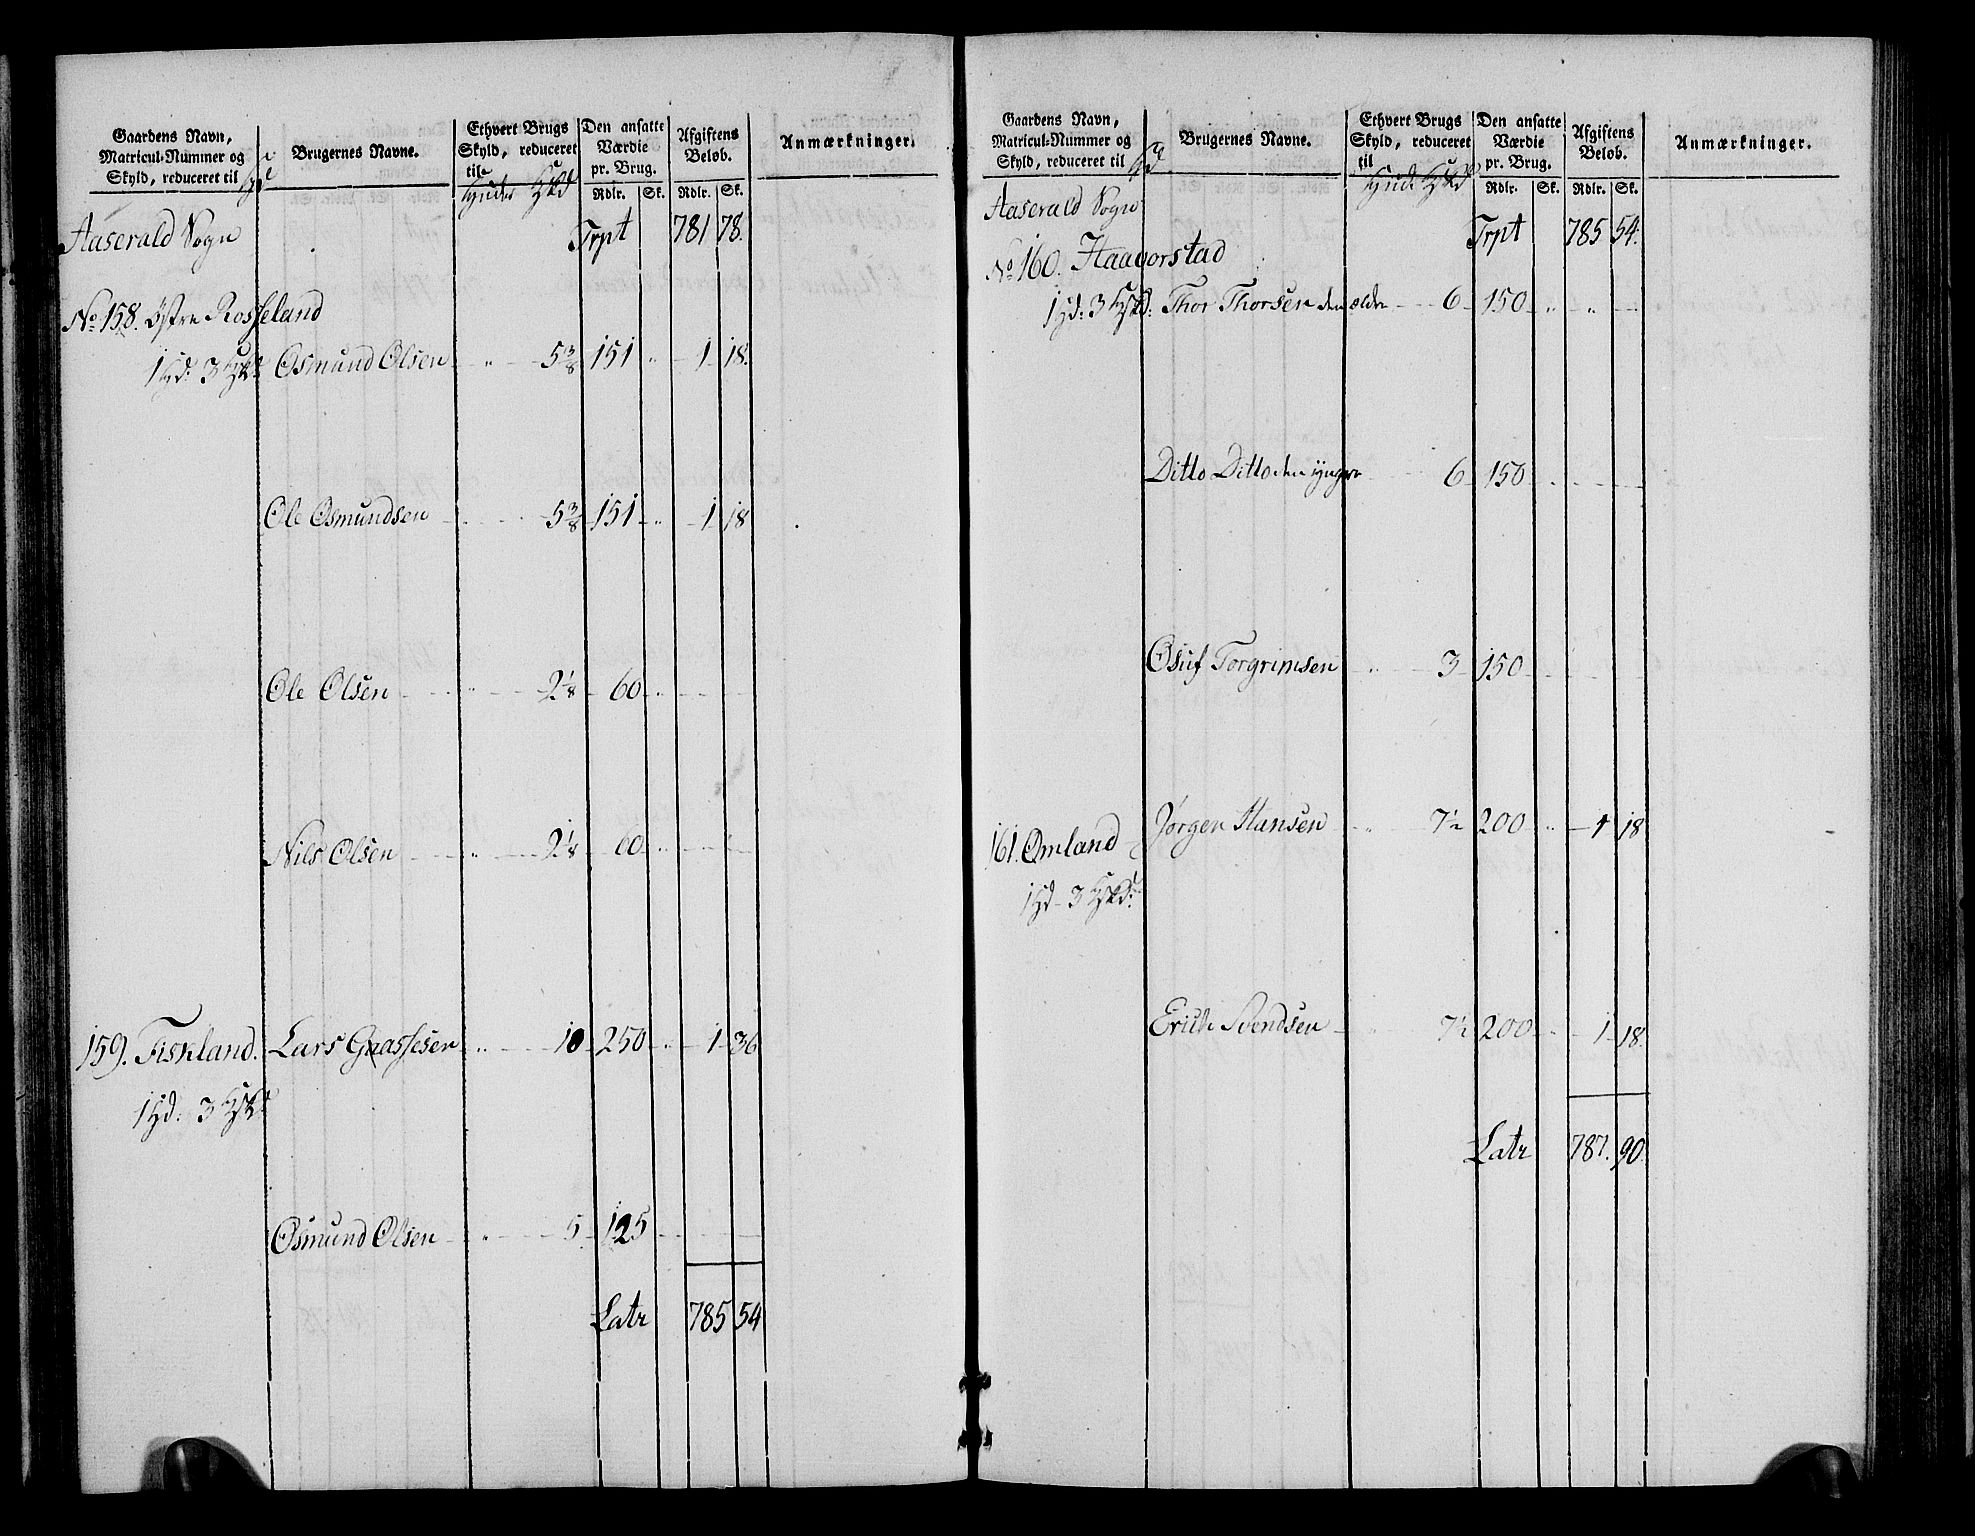 Gaardens Navn,
Matricul-Nummer og
Skyld, reduceret til
Brugernes Navne.
Ethvert Brugs
Skyld, reduceret
til
Huder Hskd
Den ansatte
Værdie
pr. Brug.
Rdlr. Sk.
Afgiftens
Beløb.
Rdlr. Sk.
Anmærkninger.
Aaserald Sogn Trpt 781 78.
No. 158. østre Rosseland
1 Hd: 3 Hskd: Osmund Olsen " 5 3/8 151 " 1 18.
Ole Osmundsen 5 3/8 151 " 1 18
Ole Olsen " 2 1/8 60 "
Nils Olsen " 2 1/8 60 "
159. Fiskland. Lars Gaassesen " 10 250 " 1 36
1 Hd: 3 Hskd:
Osmund Olsen " 5 125
Latr 785 54
Gaardens Navn,
Matricul-Nummer og
Skyld, reduceret til
Brugernes Navne.
Ethvert Brugs
Skyld, reduceret
til
Hude Hskd
Den ansatte
Værdie
pr. Brug.
Rdlr. Sk.
Afgiftens
Beløb.
Rdlr. Sk.
Anmærkninger.
Aaserald Sogn Trpt 785 54.
No. 160. Haavorstad
1 Hd: 3 Hskd: Thor Thorsen den ældre 6 150 " "
Ditto Ditto den yngre 6 150
Osuf Torgrimsen " 3 150
161. Omland Jørgen Hansen " 7 1/2 200 " 1 18
1 Hd 3 Hskd:
Erich Svendsen 7 1/2 200 1 18.
Latr 787. 90.